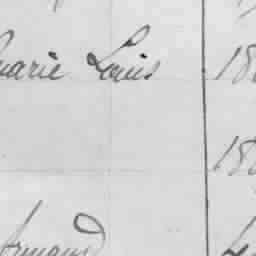 marie Louis 18
18
Armand